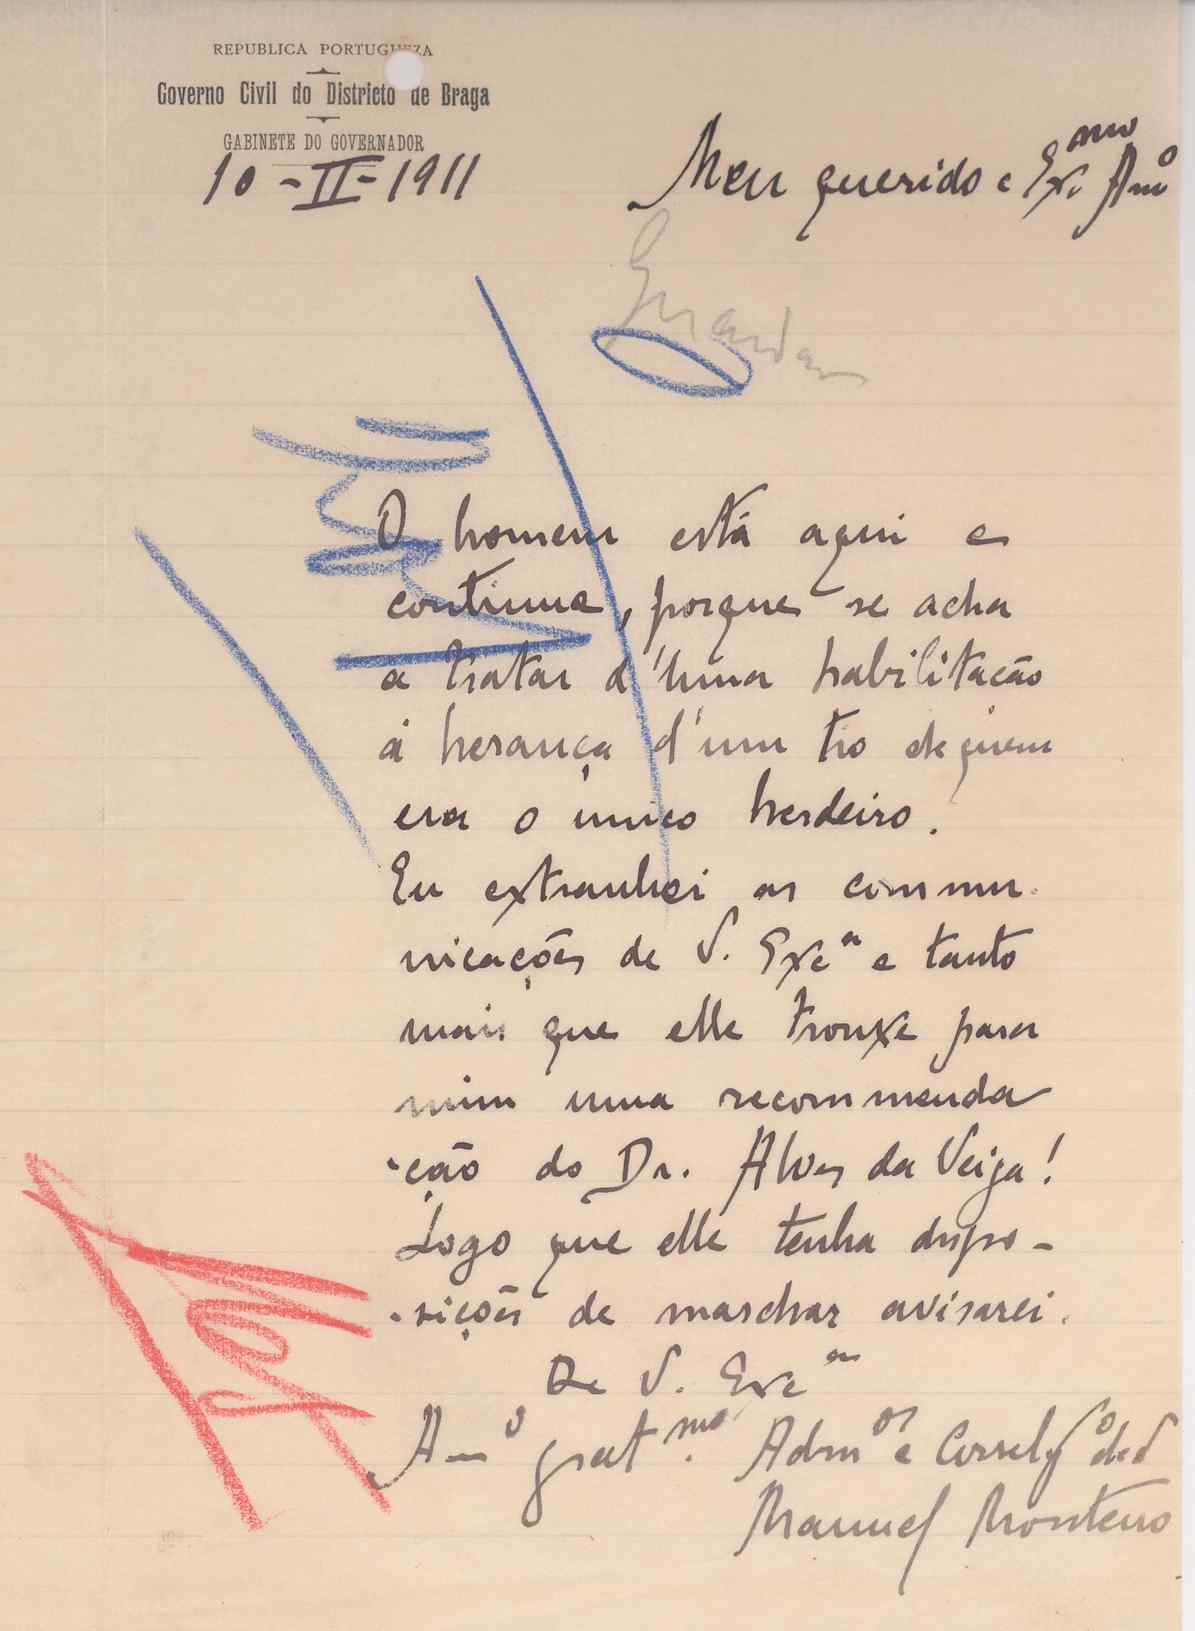 REPUBLICA PORTUGUEZA
Governo Civil do Districto de Braga
GABINETE DO GOVERNADOR
10-II-1911
Meu querido e Exc.mo Am.o
Guardar
O homem está aqui e
continua, porque se acha
a tratar d'uma habilitação
á herança d'um tio de quem
era o unico herdeiro.
Eu extranhei as commu-
nicações de V. Exc.a e tanto
mais que elle trouxe para
mim uma recommenda
-ção do Dr. Alves da Veiga!
Logo que elle tenha dispo-
-sições de marchar avisarei.
De V. Exc.a
Am.o grat.mo Adm.or e Correlg.o ded
Manuel Monteiro